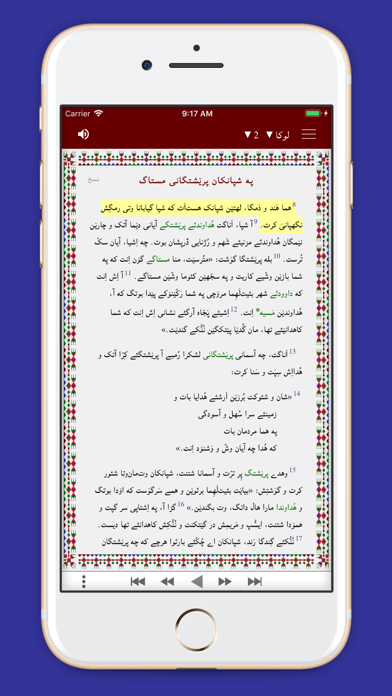 Carrier 9:17 AM
لوکا ▼ 2 ▼
په شپانکان پرێشتگانی مستاگ
نسخ
8 هما هَند و دَمگا، لهتێن شپانک هستاَت که شپا گیابانا وتی رمگِش
نگهپانیَ کرت. 9 آ شپا، اناگت هُداوندئے پرێشتگے آیانی دێما آتک و چارێن
نێمگان هُداوندئے مزنیئے شَهم و رُژنایی دْرپشان بوت. چه اِشیا، آیان سکّ
تُرست. 10 بله پرێشتگا گوَشت: «مترُسێت، منا مستاگے گۆن اِنت که په
شما بازێن وشّیے کاریت و په سجّهێن کئوما وشّێن مستاگے. 11 آ اِش اِنت
که داوودئے شهر بئیت‌لَهِما مرۆچی په شما رَکّێنۆکے پێدا بوتگ که آ،
هُداوندێن مَسیه* اِنت. 12 اِشیئے پَجّاه آرگئے نشانی اِش اِنت که شما
کاهدانێئے تها، مان گُدێا پێتکگێن نُنُّکے گندێت.»
13 اَناگت، چه آسمانی پرێشتگانی لشکرا رُمبے آ پرێشتگئے کِرّا آتک و
هُدااِش سِپَت و سَنا کرت:
14 «شان و شئوکت بُرزێن اَرشئے هُدایا بات و
زمینئے سرا سُهل و آسودگی
په هما مردمان بات
که هُدا چه آیان وشّ و وَشنود اِنت.»
15 وهدے پرێشتگ پِر ترّت و آسمانا شتنت، شپانکان وت‌مان‌وتا شئور
کرت و گوَشتِش: «بیایێت بئیت‌لَهِما برئوێن و همے سَرگوَست که اۆدا بوتگ
و هُداوندا مارا هال داتگ، وت بگندێن.» 16 گُڑا آ، په اِشتاپی سر گپت و
همۆدا شتنت، ایسُّپ و مَریمِش در گێتکنت و نُنُّکِش کاهدانئے تها دیست.
17 نُنُّکئے گِندگا رَند، شپانکان اے چُکّئے بارئوا هرچے که چه پرێشتگان